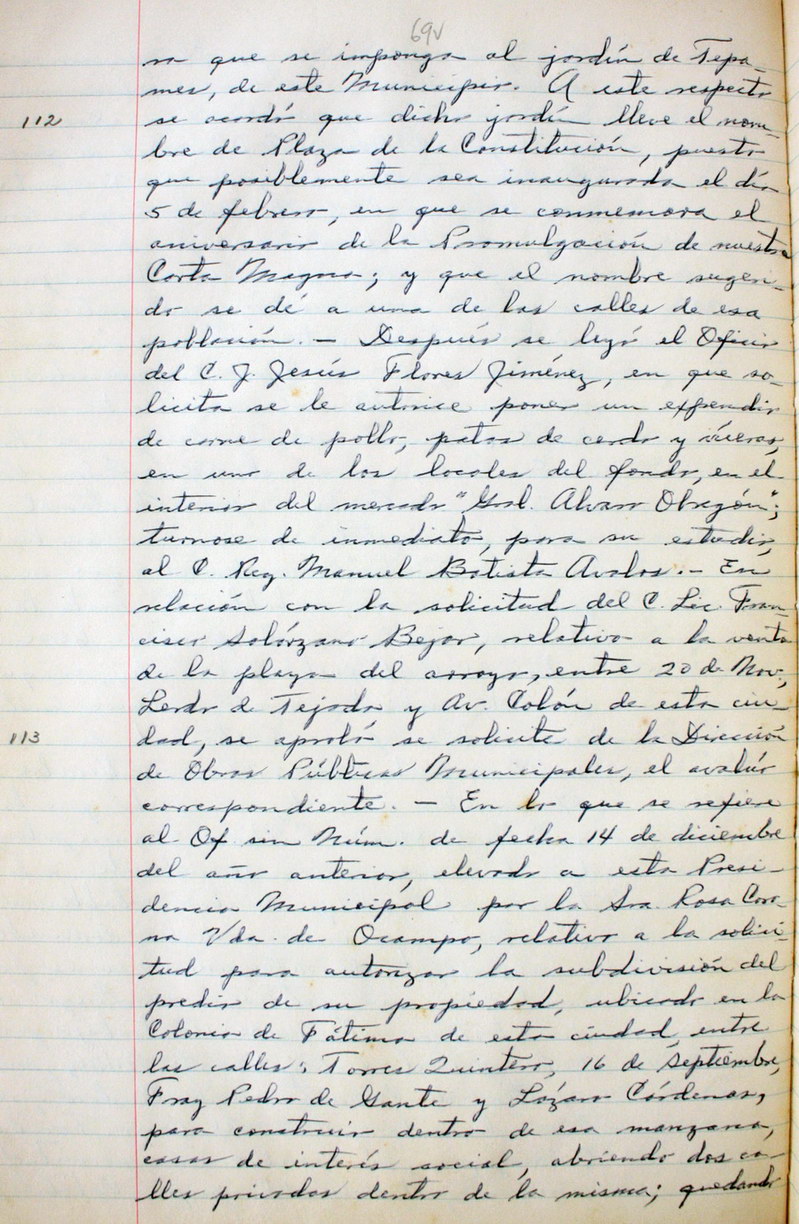 69v
ra que se imponga al jardín de Tepa-
mes, de este Municipio. A este respecto
112 se acordó que dicho jardín lleve el nom-
bre de Plaza de la Constitución, puesto
que posiblemente sea inaugurada el día
5 de febrero, en que se conmemora el
aniversario de la Promulgación de nuestra
Carta Magna; y que el nombre sugeri-
do se dé a una de las calles de esa
población. — Después se leyó el Oficio
del C. J. Jesús Flores Jiménez, en que so-
licita se le autorice poner un expendio
de carne de pollo, patas de cerdo y víceras,
en uno de los locales del fondo, en el
interior del mercado "Gral. Alvaro Obregón";
turnose de inmediato, para su estudio,
al C. Reg. Manuel Batista Avalos. — En
relación con la solicitud del C. Lic. Fran-
cisco Solórzano Bejar, relativo a la venta
de la playa del arroyo, entre 20 de Nov.,
Lerdo de Tejada y Av. Colón de esta ciu-
113 dad, se aprobó se solicite de la Dirección
de Obras Públicas Municipales, el avalúo
correspondiente. — En lo que se refiere
al Of sin Núm. de fecha 14 de diciembre
del año anterior, elevado a esta Presi-
dencia Municipal por la Sra. Rosa Coro-
na Vda. de Ocampo, relativo a la solici-
tud para autorizar la subdivisión del
predio de su propiedad, ubicado en la
Colonia de Fátima de esta ciudad, entre
las calles: Torres Quintero, 16 de Septiembre,
Fray Pedro de Gante y Lázaro Cárdenas,
para construir dentro de esa manzana,
casas de interés social, abriendo dos ca-
lles privadas dentro de la misma; quedando